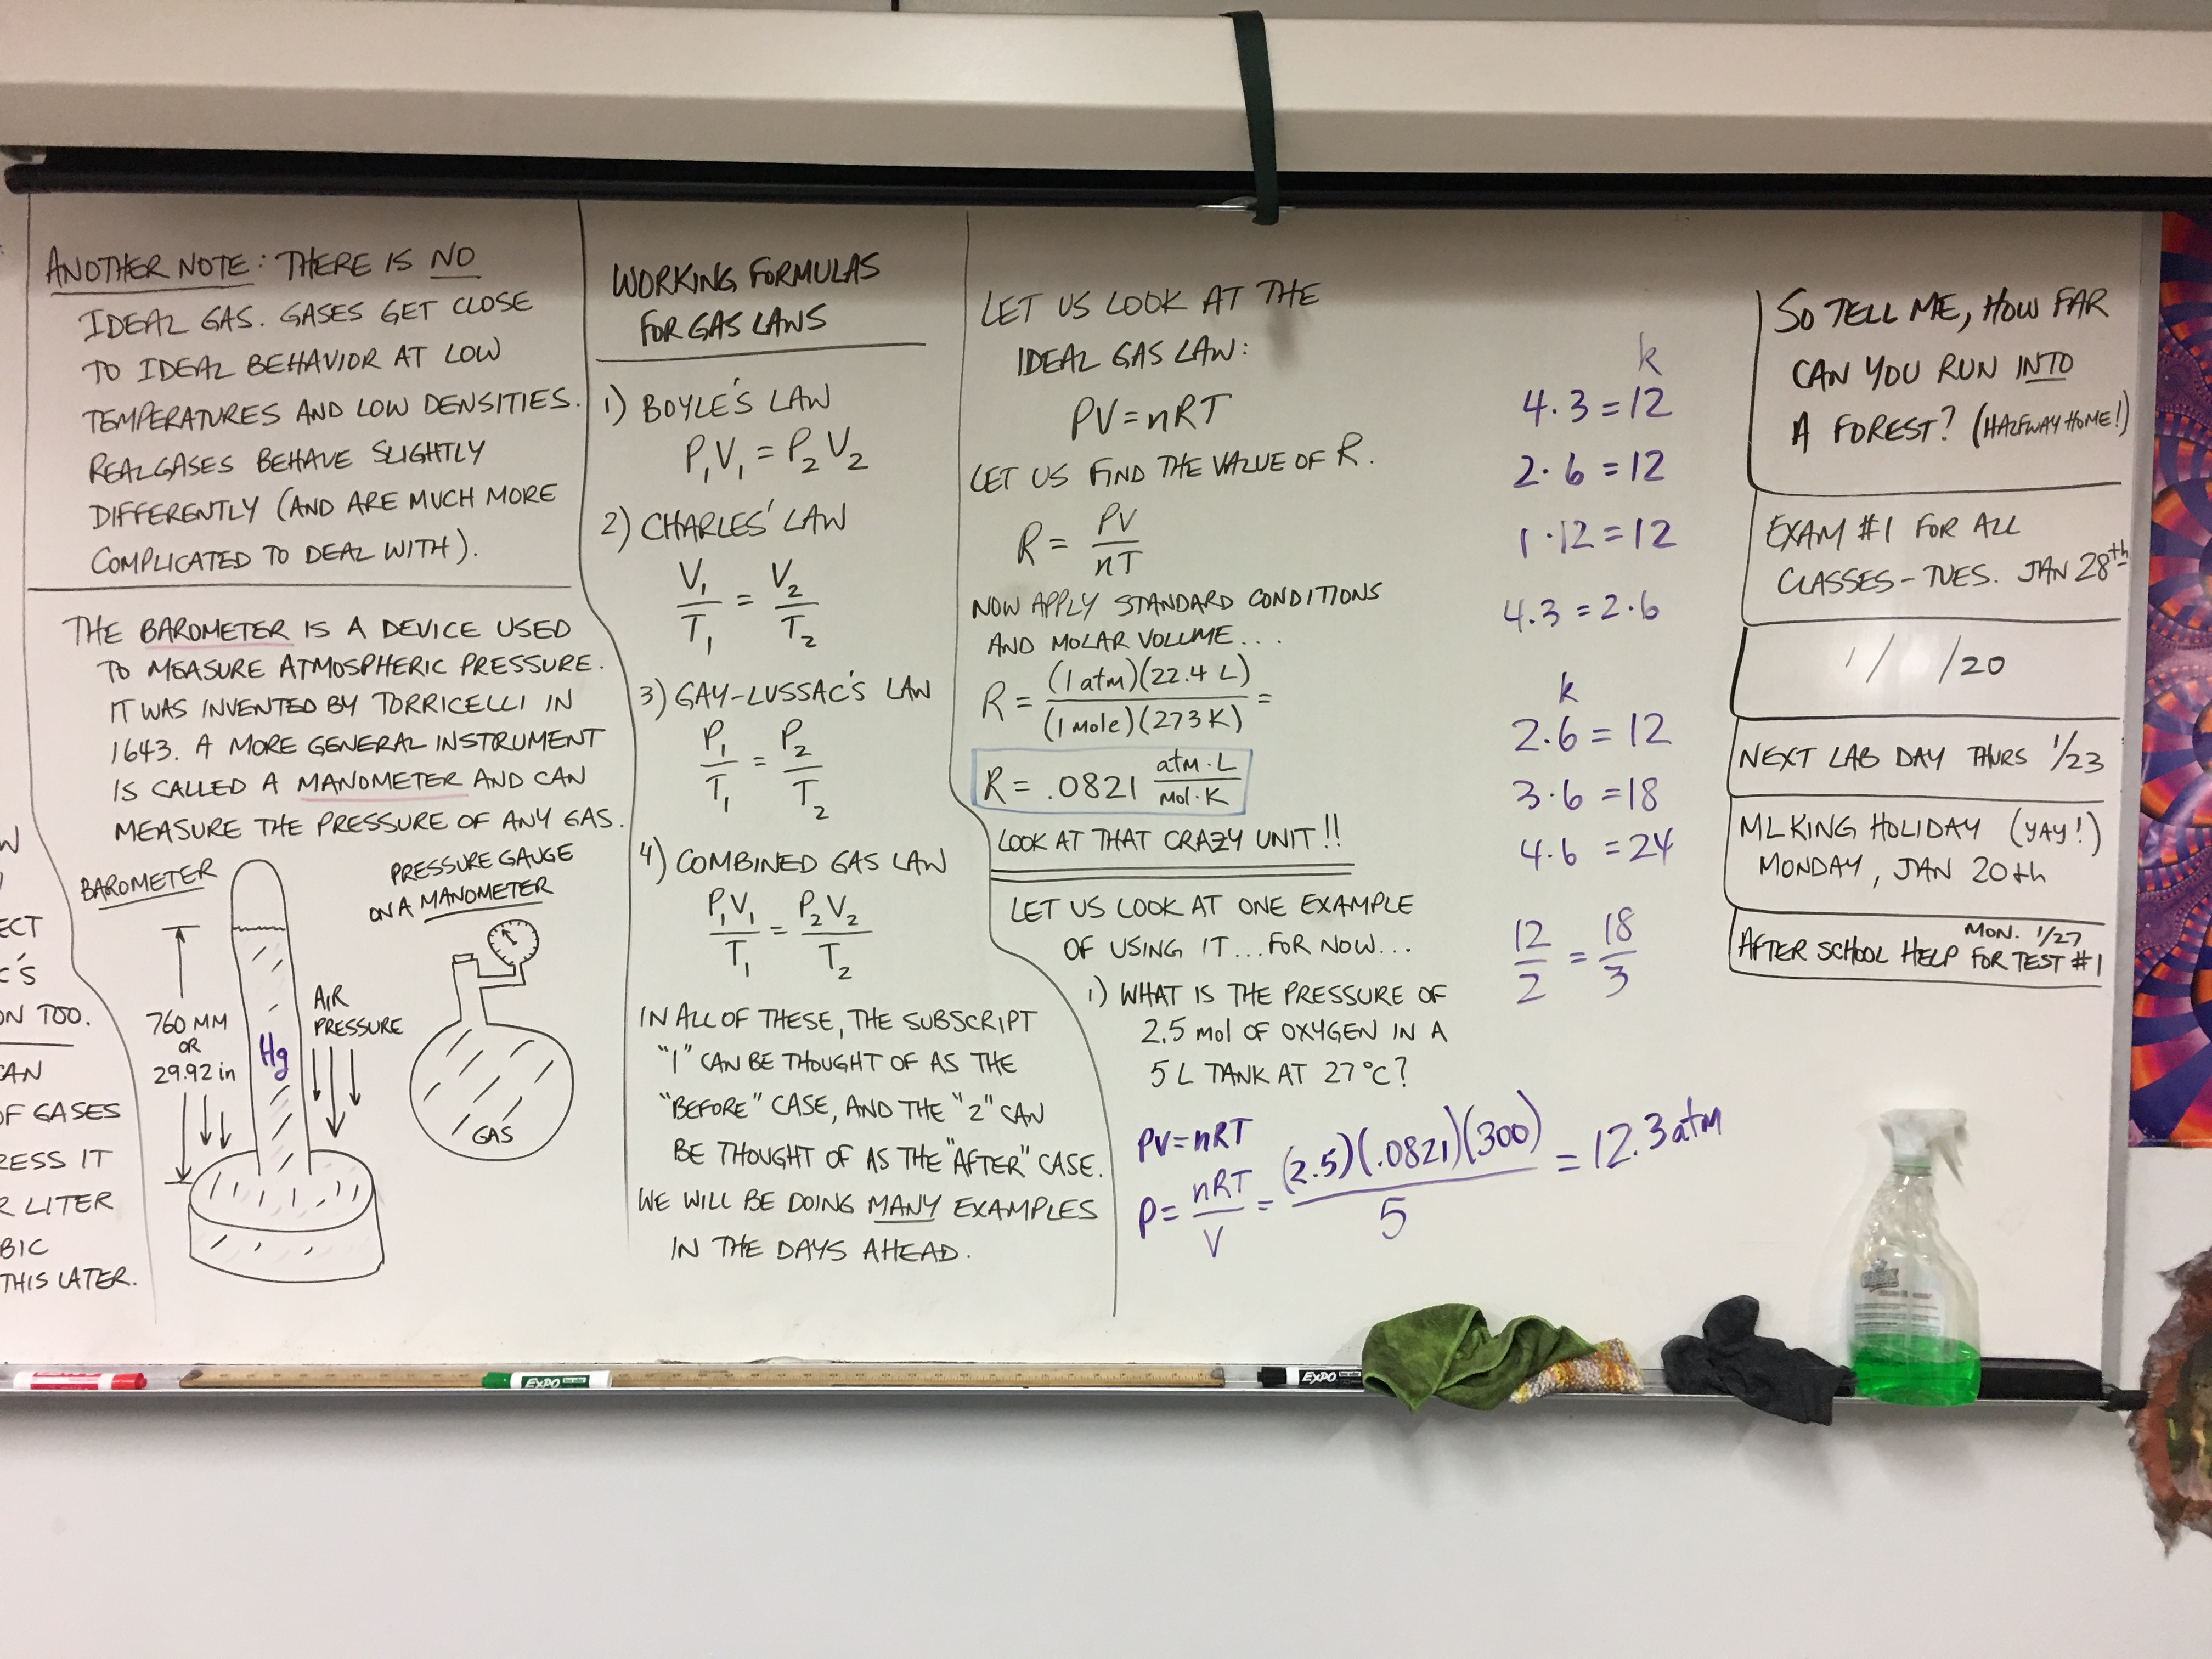 ANOTHER NOTE: THERE IS NO
IDEAL GAS. GASES GET CLOSE
TO IDEAL BEHAVIOR AT LOW
TEMPERATURES AND LOW DENSITIES.
REAL GASES BEHAVE SLIGHTLY
DIFFERENTLY (AND ARE MUCH MORE
COMPLICATED TO DEAL WITH).
THE BAROMETER IS A DEVICE USED
TO MEASURE ATMOSPHERIC PRESSURE.
IT WAS INVENTED BY TORRICELLI IN
1643. A MORE GENERAL INSTRUMENT
IS CALLED A MANOMETER AND CAN
MEASURE THE PRESSURE OF ANY GAS.
BAROMETER
760 MM
OR
29.92 in
Hg
AIR
PRESSURE
PRESSURE GAUGE
ON A MANOMETER
GAS
W
ECT
C'S
ON TOO.
CAN
OF GASES
RESS IT
R LITER
BIC
THIS LATER.
WORKING FORMULAS
FOR GAS LAWS
1) BOYLE'S LAW
P₁V₁ = P₂V₂
2) CHARLES' LAW
V₁/T₁ = V₂/T₂
3) GAY-LUSSAC'S LAW
P₁/T₁ = P₂/T₂
4) COMBINED GAS LAW
P₁V₁/T₁ = P₂V₂/T₂
IN ALL OF THESE, THE SUBSCRIPT
"1" CAN BE THOUGHT OF AS THE
"BEFORE" CASE, AND THE "2" CAN
BE THOUGHT OF AS THE "AFTER" CASE.
WE WILL BE DOING MANY EXAMPLES
IN THE DAYS AHEAD.
LET US LOOK AT THE
IDEAL GAS LAW:
PV=nRT
LET US FIND THE VALUE OF R.
R = PV/nT
NOW APPLY STANDARD CONDITIONS
AND MOLAR VOLUME...
R = (1 atm)(22.4 L)/(1 mole)(273 K) =
R = .0821 atm·L/mol·K
LOOK AT THAT CRAZY UNIT!!
LET US LOOK AT ONE EXAMPLE
OF USING IT...FOR NOW...
1) WHAT IS THE PRESSURE OF
2.5 mol OF OXYGEN IN A
5 L TANK AT 27°C?
PV=nRT
P = nRT/V = (2.5)(.0821)(300)/5 = 12.3 atm
k
4·3=12
2·6=12
1·12=12
4·3=2·6
k
2·6=12
3·6=18
4·6=24
12/2 = 18/3
SO TELL ME, HOW FAR
CAN YOU RUN INTO
A FOREST? (HALFWAY HOME!)
EXAM #1 FOR ALL
CLASSES - TUES. JAN 28th
1/ /20
NEXT LAB DAY THURS 1/23
ML KING HOLIDAY (YAY!)
MONDAY, JAN 20th
MON. 1/27
AFTER SCHOOL HELP FOR TEST #1
EXPO
EXPO